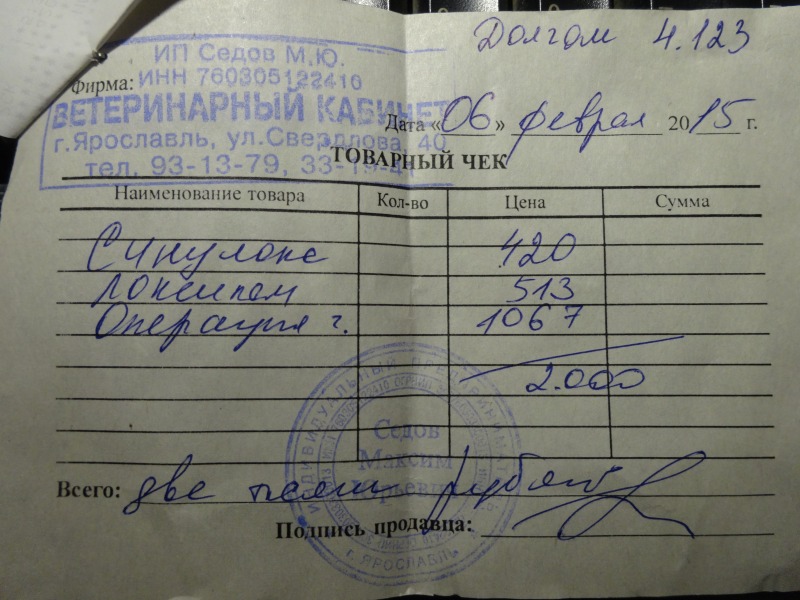 Долгом 4.123
ИП Седов М.Ю.
Фирма: ИНН 760305122410
ВЕТЕРИНАРНЫЙ КАБИНЕТ
Дата «06» февраля 2015 г.
г.Ярославль, ул.Свердлова, 40
тел. 93-13-79, 33-19-41
ТОВАРНЫЙ ЧЕК
Наименование товара Кол-во Цена Сумма
Синулокс 420
Локсиком 513
Операция г. 1067
2.000
ИНДИВИДУАЛЬНЫЙ ПРЕДПРИНИМАТЕЛЬ
Седов
Максим
Юрьевич
г. ЯРОСЛАВЛЬ
Всего: две тысячи рублей
Подпись продавца: